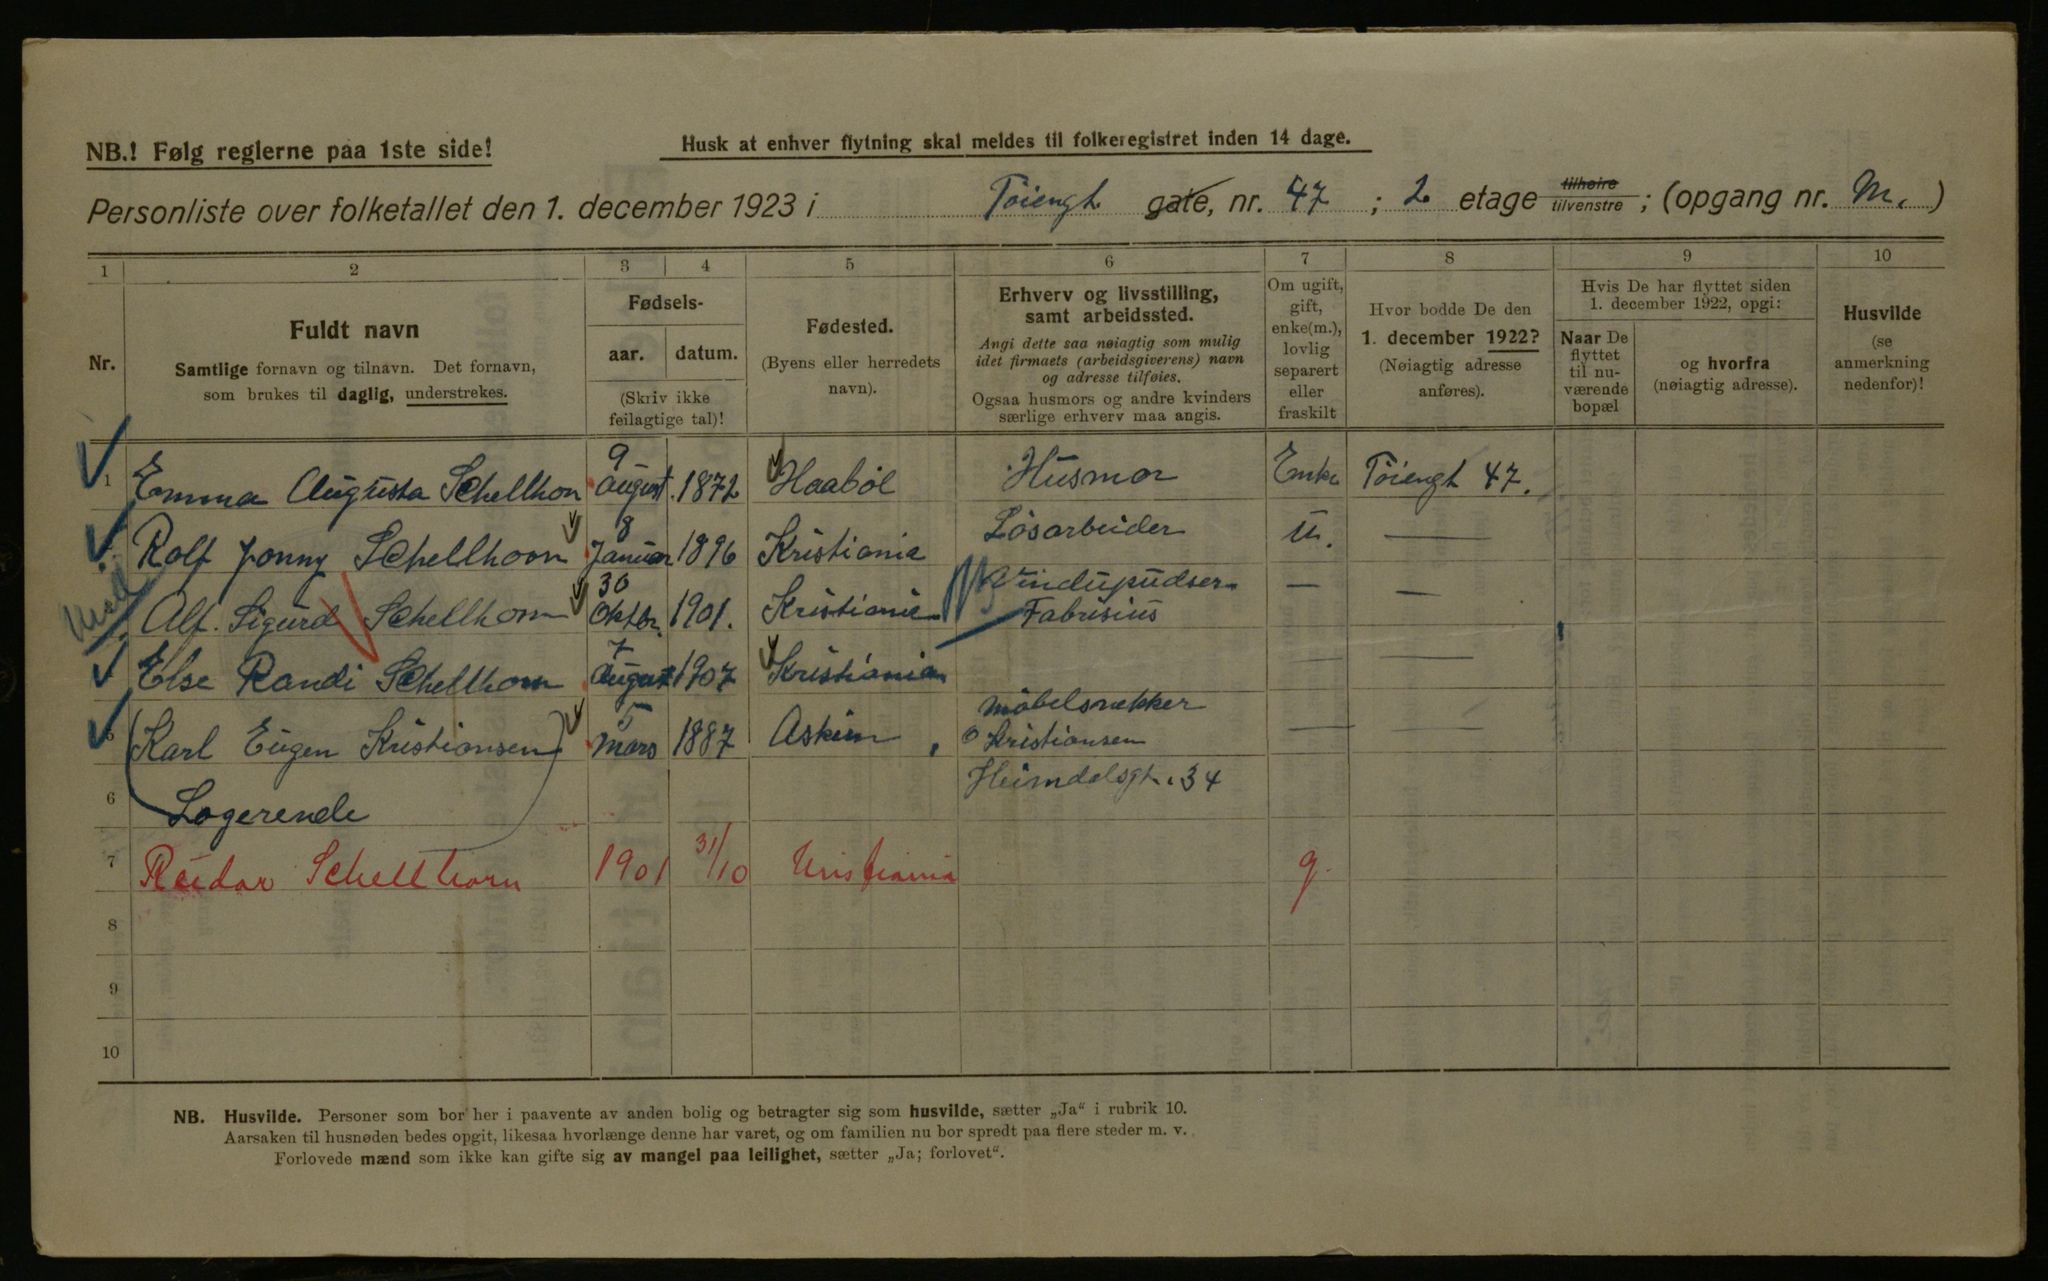 NB.! Følg reglerne paa 1ste side!
Husk at enhver flytning skal meldes til folkeregistret inden 14 dage.
Personliste over folketallet den 1. december 1923 i Töiengt. gate, nr. 47 ; 2 etage tilhøire tilvenstre ; (opgang nr. M. )
1 2 3 4 5 6 7 8 9 10
Nr.
Fuldt navn
Samtlige fornavn og tilnavn. Det fornavn,
som brukes til daglig, understrekes.
Fødsels-
aar. datum.
(Skriv ikke
feilagtige tal)!
Fødested.
(Byens eller herredets
navn).
Erhverv og livsstilling,
samt arbeidssted.
Angi dette saa nøiagtig som mulig
idet firmaets (arbeidsgiverens) navn
og adresse tilføies.
Ogsaa husmors og andre kvinders
særlige erhverv maa angis.
Om ugift,
gift,
enke(m.),
lovlig
separert
eller
fraskilt
Hvor bodde De den
1. december 1922?
(Nøiagtig adresse
anføres).
Hvis De har flyttet siden
1. december 1922, opgi:
Naar De
flyttet
til nu-
værende
bopæl
og hvorfra
(nøiagtig adresse).
Husvilde
(se
anmerkning
nedenfor)!
1 Emma Augusta Schellhon 9 August. 1872 Haaböl Husmor Enke Töiengt 47.
Rolf Jonny Schellhorn 8 Januar 1896 Kristiania Lösarbeider U. —
Alf. Sigurd Schellhorn 30 Oktbr. 1901. Kristiania Vindupudser — —
Fabrisius
Else Randi Schellhorn 7 August 1907 Kristiania — —
5 (Karl Eugen Kristiansen) 5 Mars 1887 Askim, Möbelsnekker — —
Kristiansen
6 Logerende Heimdalsgt. 34
7 Reidar Schellhorn 1901 31/10 Kristiania g.
8
9
10
NB. Husvilde. Personer som bor her i paavente av anden bolig og betragter sig som husvilde, sætter „Ja“ i rubrik 10.
Aarsaken til husnøden bedes opgit, likesaa hvorlænge denne har varet, og om familien nu bor spredt paa flere steder m. v.
Forlovede mænd som ikke kan gifte sig av mangel paa leilighet, sætter „Ja; forlovet“.